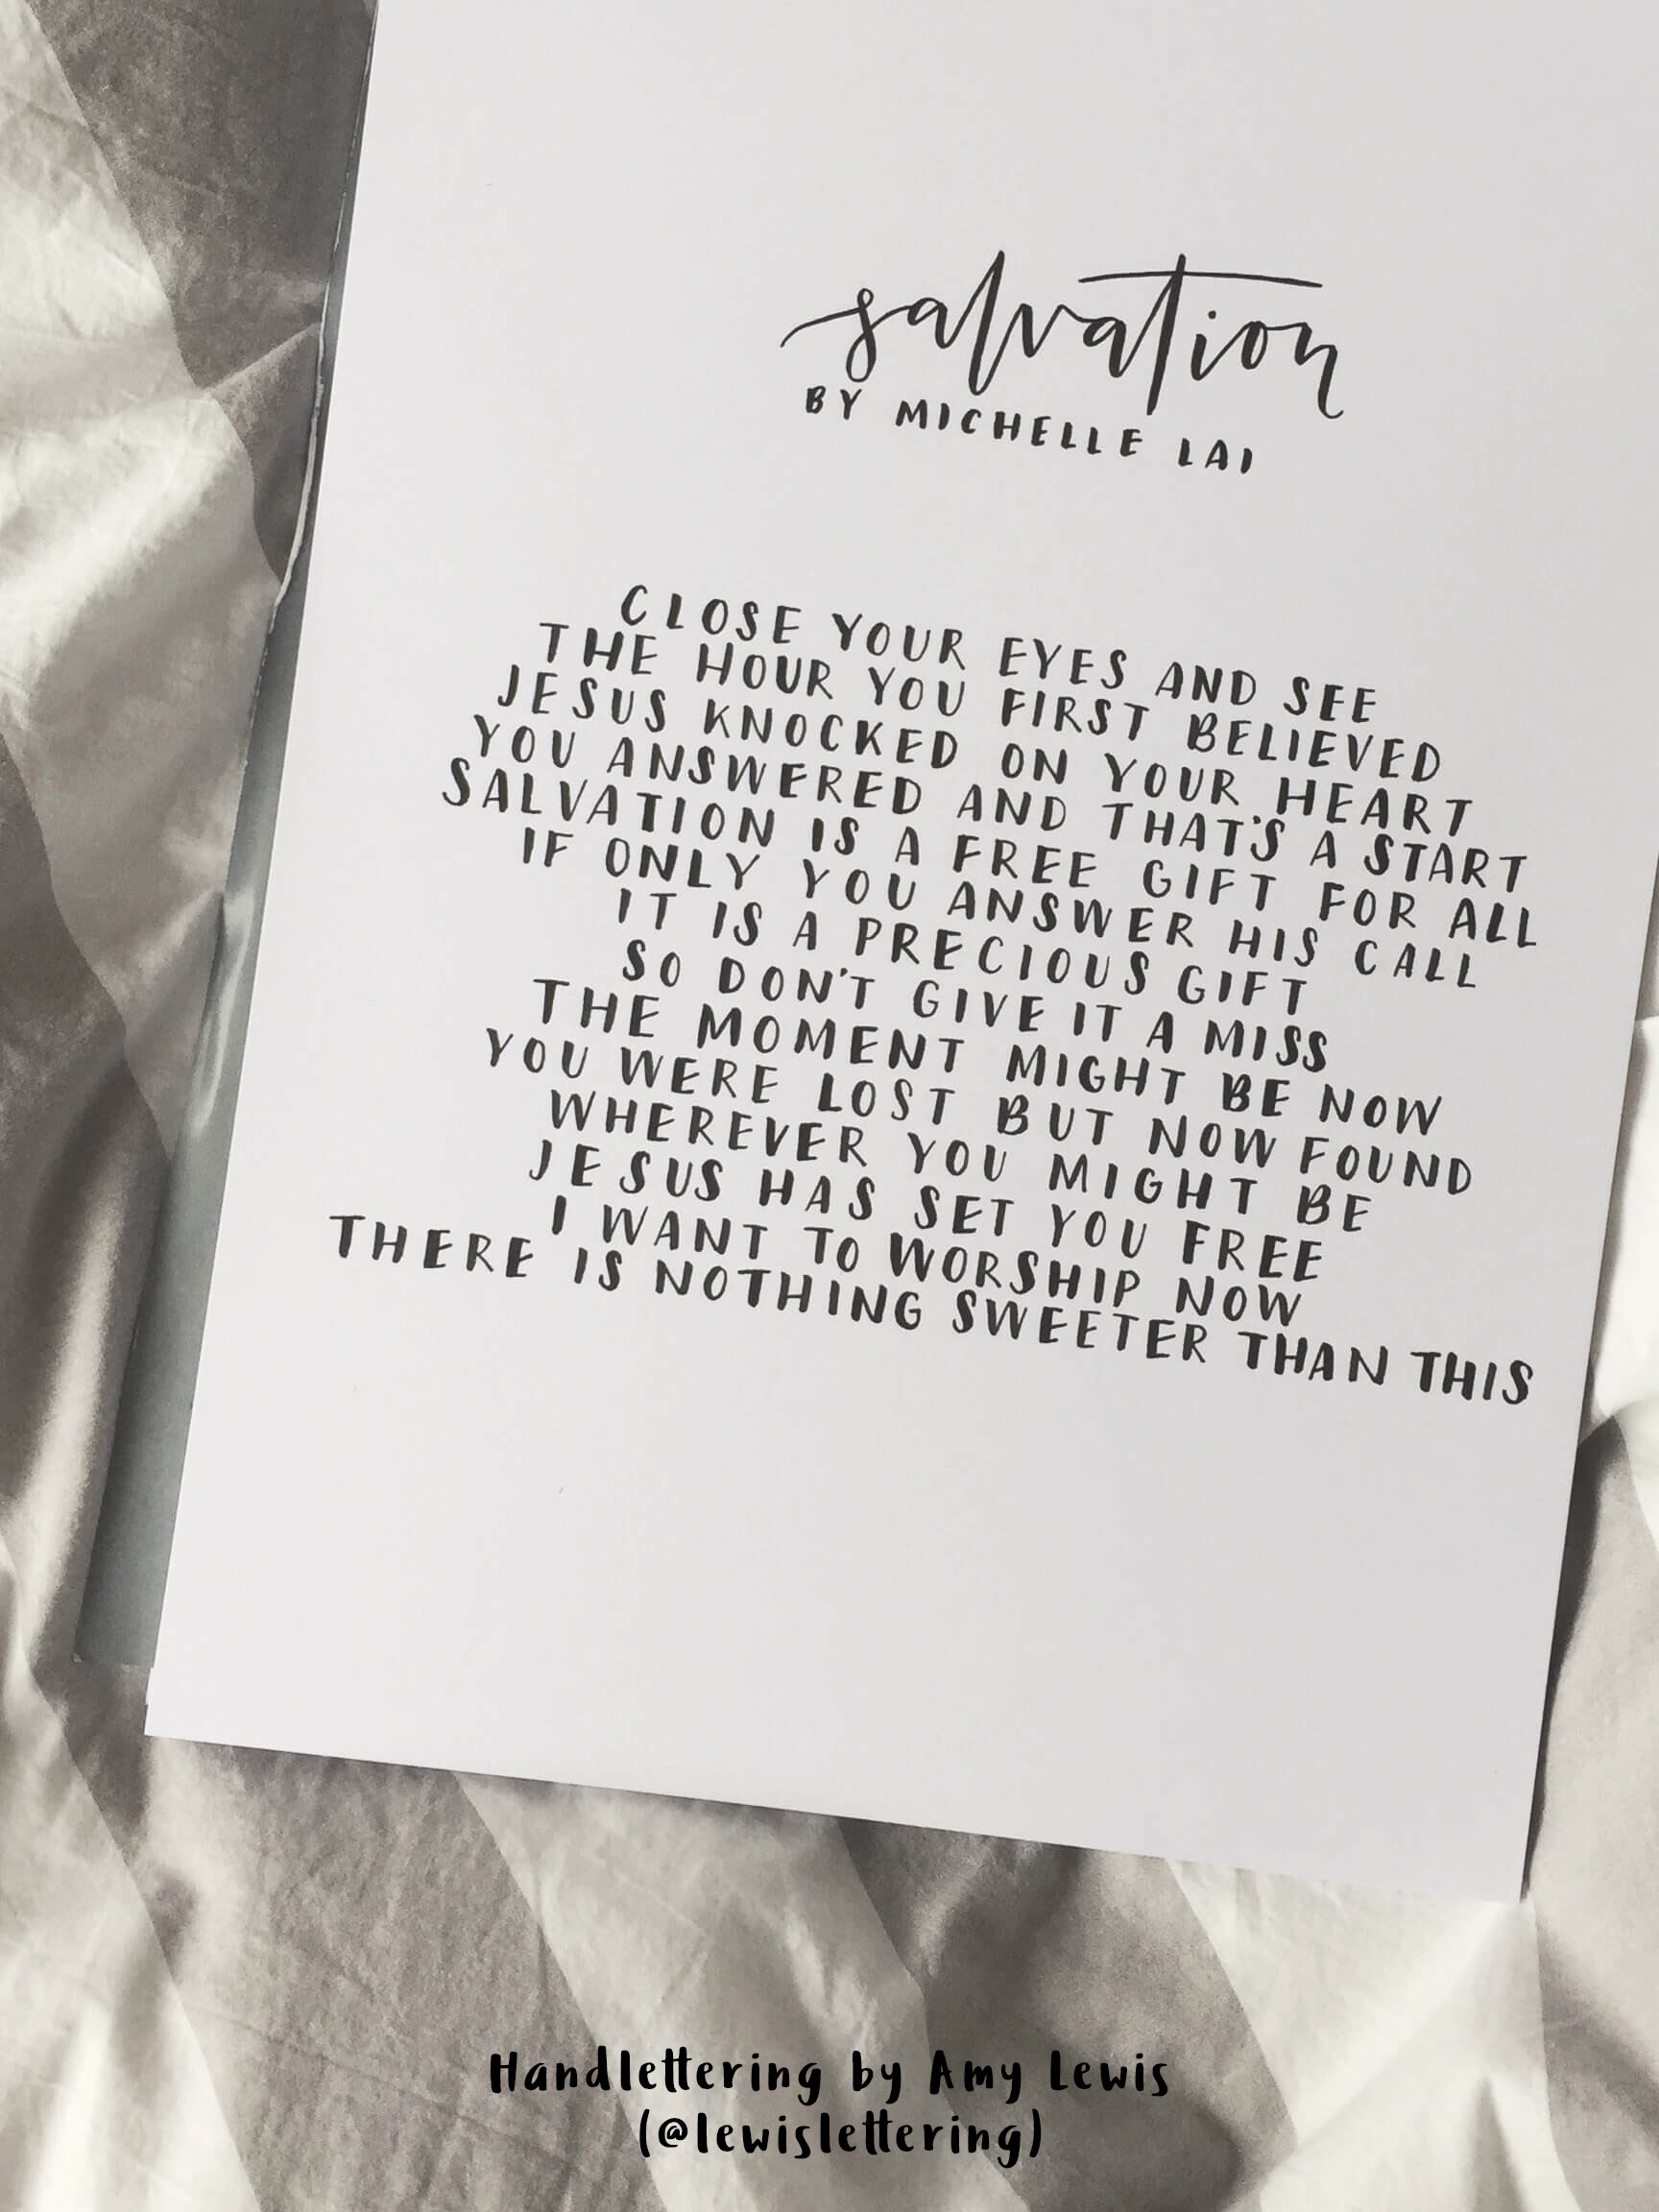 salvation
BY MICHELLE LAI
CLOSE YOUR EYES AND SEE
THE HOUR YOU FIRST BELIEVED
JESUS KNOCKED ON YOUR HEART
YOU ANSWERED AND THAT'S A START
SALVATION IS A FREE GIFT FOR ALL
IF ONLY YOU ANSWER HIS CALL
IT IS A PRECIOUS GIFT
SO DON'T GIVE IT A MISS
THE MOMENT MIGHT BE NOW
YOU WERE LOST BUT NOW FOUND
WHEREVER YOU MIGHT BE
JESUS HAS SET YOU FREE
I WANT TO WORSHIP NOW
THERE IS NOTHING SWEETER THAN THIS
Handlettering by Amy Lewis
(@lewislettering)